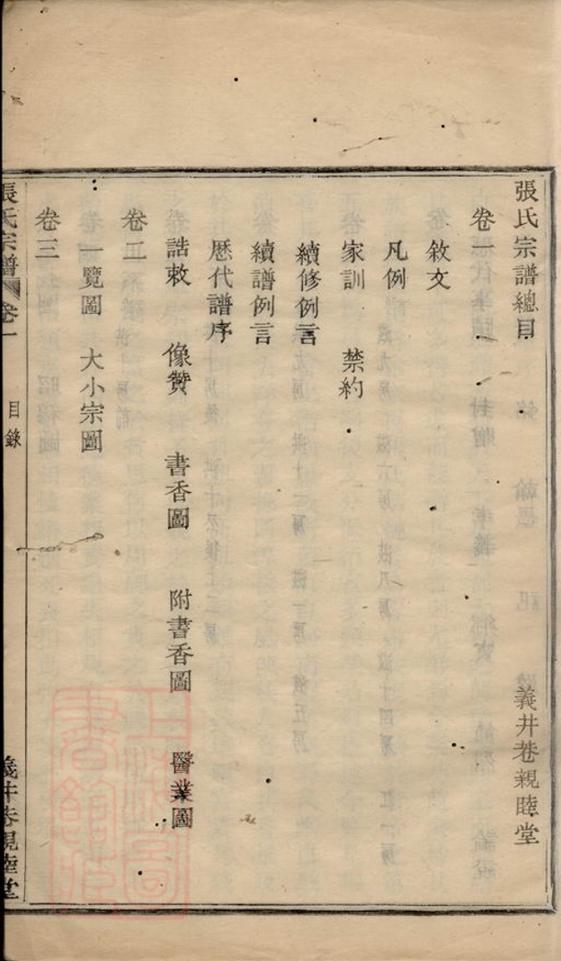 張氏宗譜總目 義井巷親睦堂
卷一
敘文
凡例
家訓 禁約
續修例言
續譜例言
歷代譜序
誥敕 像贊 書香圖 附書香圖 醫業圖
卷二
一覽圖 大小宗圖
卷三
張氏宗譜 卷一 目錄 義井巷親睦堂
上海圖書館藏